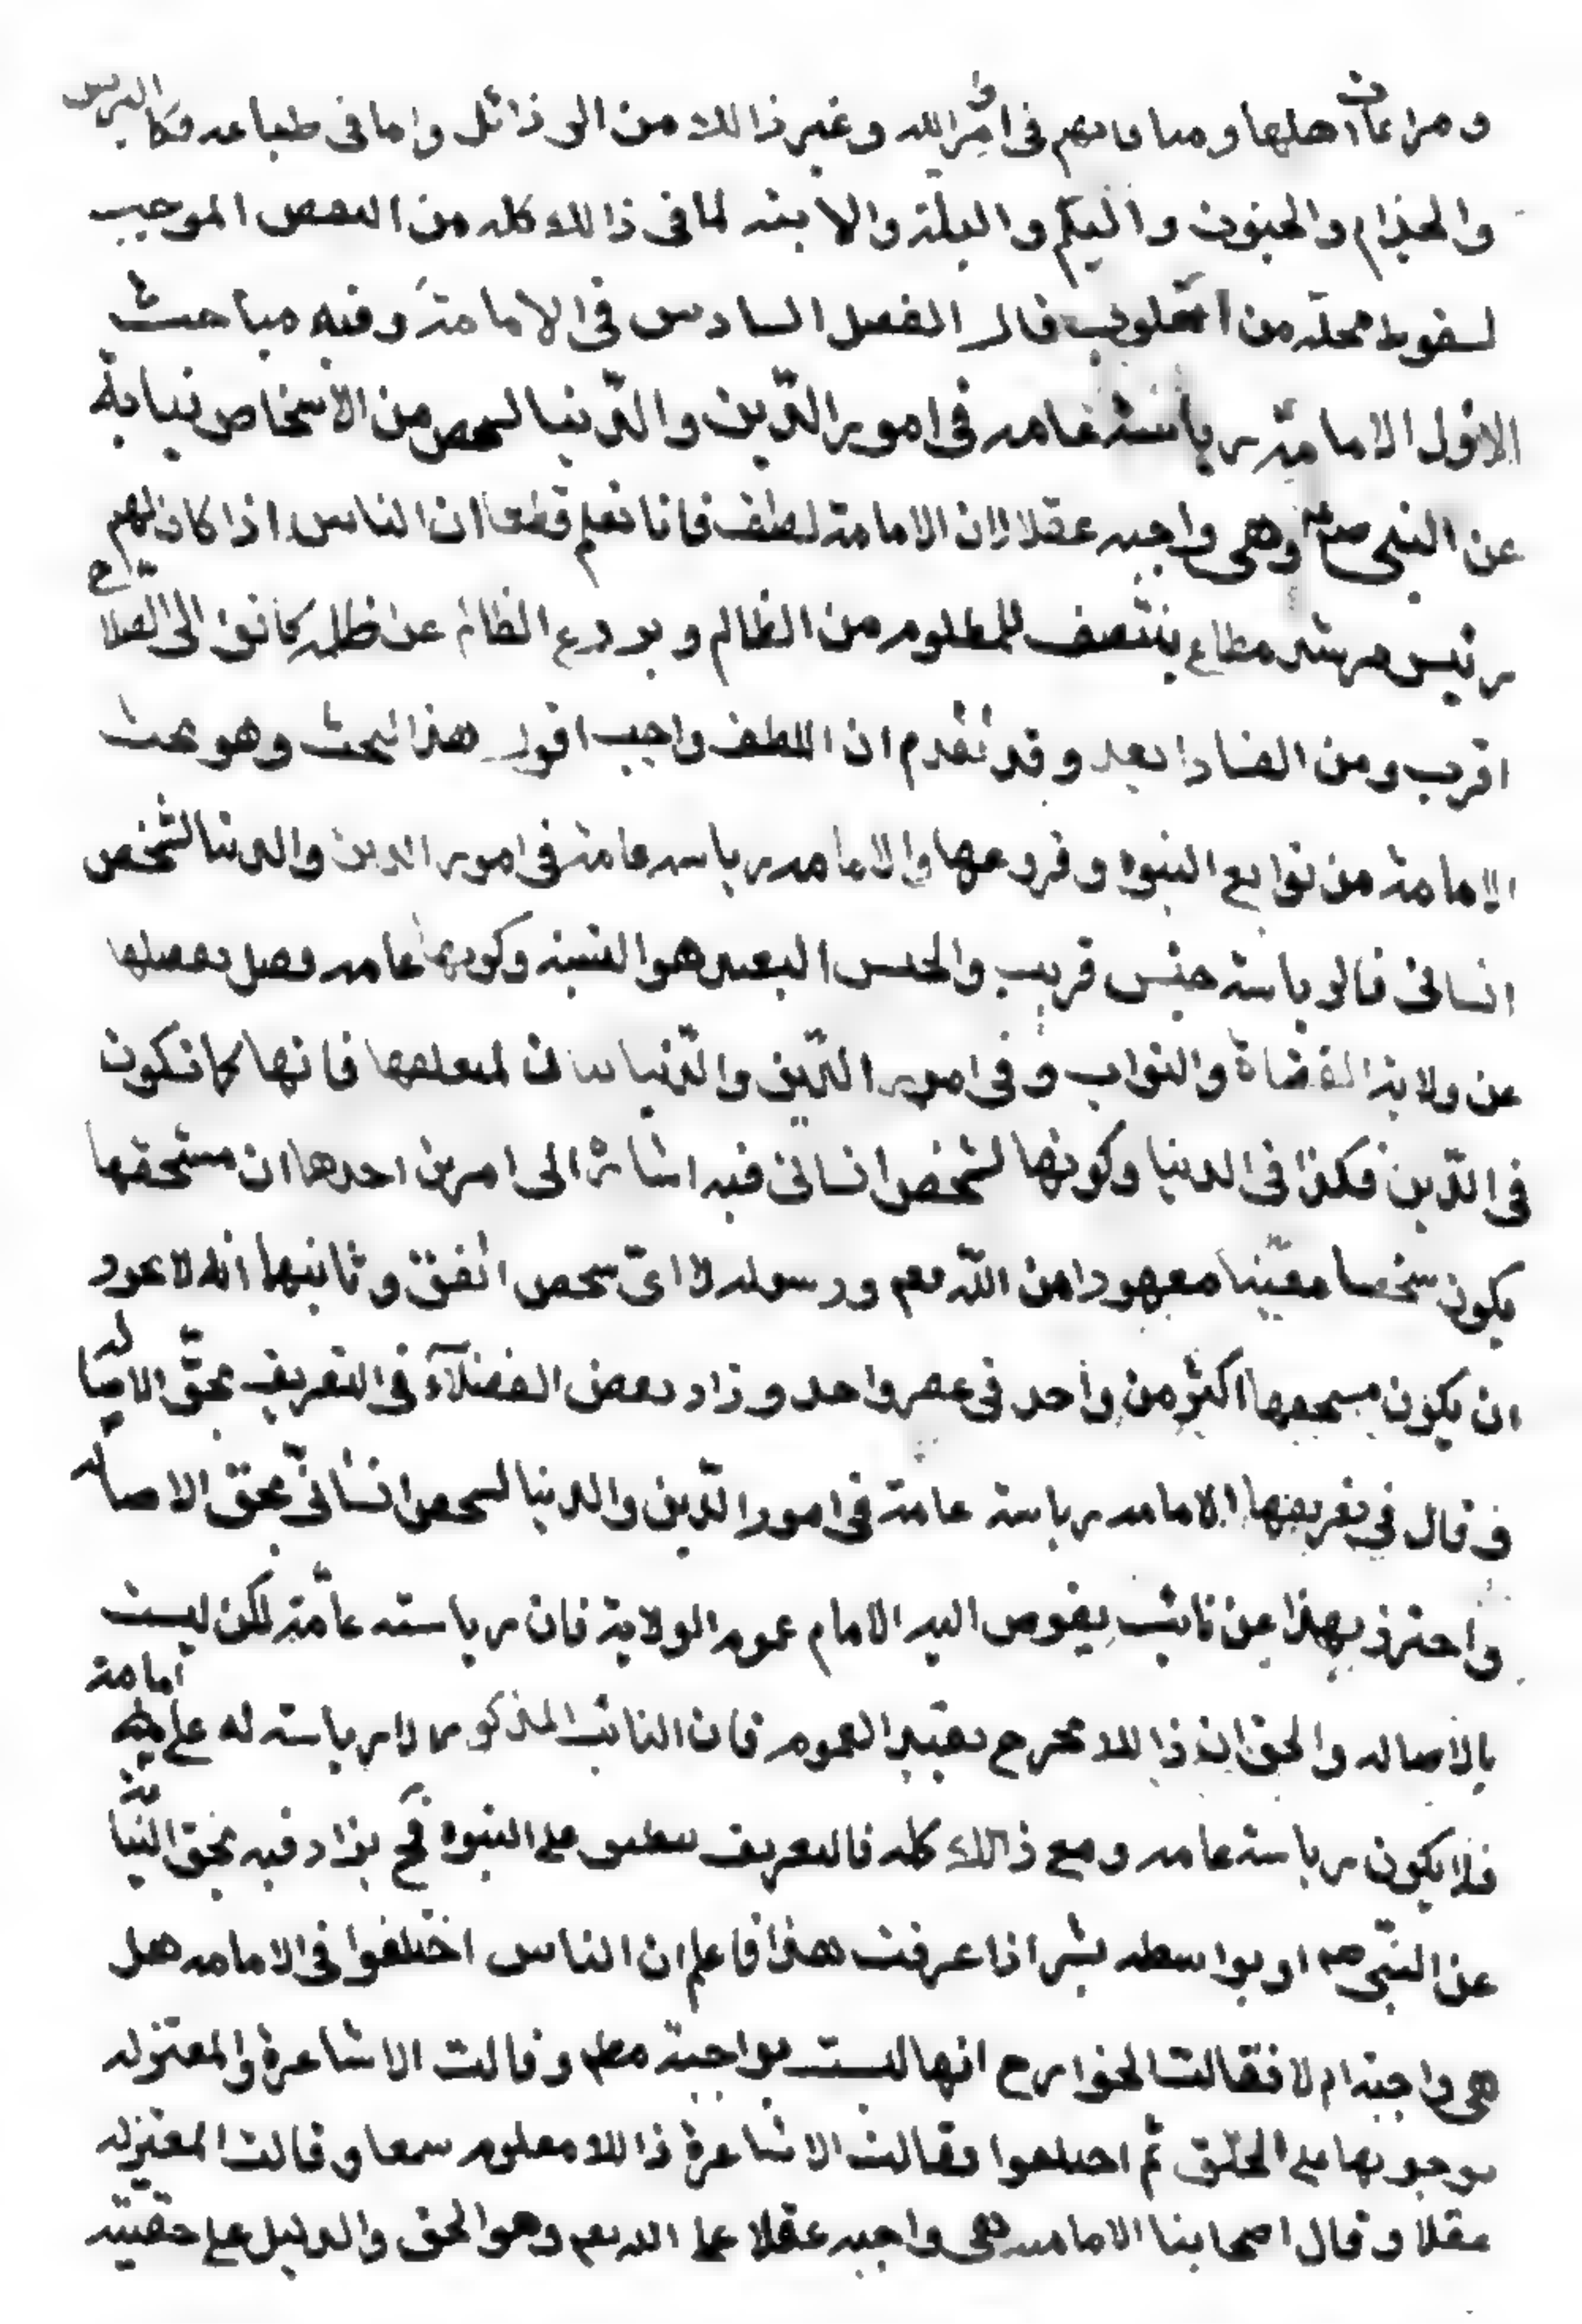 ومراعات اهلها ومداهنتهم فى امر الله وغير ذالك من الرذائل واما فى طباعه فكالبرص
والجذام والجنون والبكم والبله والابنه لما فى ذالك كله من النقص الموجب
لسقوط محله من القلوب قال الفصل السادس فى الامامة وفيه مباحث
الاول الامامة رياسة عامه فى امور الدّين والدّنيا لشخص من الاشخاص نيابة
عن النبى صلعم وهى واجبه عقلا لان الامامة لطف فانا نعلم قطعا ان الناس اذا كان لهم
رئيس مرشد مطاع ينتصف للمظلوم من الظالم ويردع الظالم عن ظلمه كانوا الى الصّلاح
اقرب ومن الفساد ابعد وقد تقدم ان اللطف واجب اقول هذا البحث وهو بحث
الامامة من توابع النبوه وفروعها والامامه رياسه عامة فى امور الدين والدنيا لشخص
انسانى فالرياسة جنس قريب والجنس البعيد هو النسبة وكونها عامه فصل يفصلها
عن ولاية القضاة والنواب وفى امور الدّين والدّنيا بيان لمتعلقها فانها كما تكون
فى الدّين فكذا فى الدنيا وكونها لشخص انسانى فيه اشارة الى امرين احدها ان مستحقها
يكون شخصا معيّنا معهودا من اللّه تعم ورسوله لا اىّ شخص اتفق وثانيها انه لا يجوز
ان يكون مستحقها اكثر من واحد فى عصر واحد وزاد بعض الفضلآء فى التعريف بحقّ الاصاله
وقال في تعريفها الامامه رياسة عامة فى امور الدّين والدنيا لشخص انسانىّ بحق الاصاله
واحترز بهذا عن نائب يفوض اليه الامام عموم الولاية فان رياسته عامّة لكن ليست
بالاصاله والحق ان ذالك يخرج بقيد العموم فان النائب المذكور لا رياسة له على امامه
فلا يكون رياسة عامه ومع ذالك كله فالتعريف ينطبق على النبوة فح يزاد فيه بحق النّيابة
عن النبّى صم او بواسطه بشر اذا عرفت هذا فاعلم ان الناس اختلفوا فى الامامه هل
هى واجبة ام لا فقالت الخوارج انها ليست بواجبة مطم وقالت الاشاعرة والمعتزله
بوجوبها على الخلق ثم اختلفوا فقالت الاشاعرة ذالك معلوم سمعا وقالت المعتزله
عقلا وقال اصحابنا الاماميه هى واجبه عقلا على الله تعم وهو الحق والدليل على حقيته